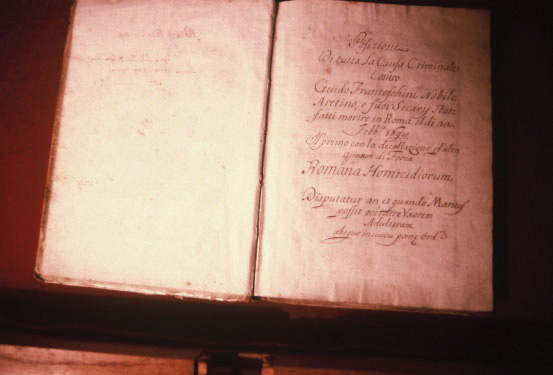 Posizione
Di tutta La Causa Criminale
Contro
Guido Franceschini Nobile
Aretino, e suoi Sicarij Stati
fatti morire in Roma il di 22.
Febb. 1698.
Il primo con la decollazione gl'altri
quattro di Forca
Romana Homicidiorum
Disputatur an et quando Maritus
possit occidere Uxorem
Adulteram
absque incursu